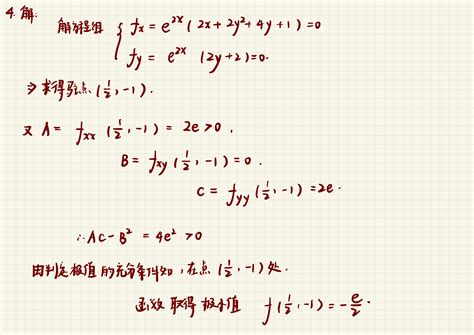 4. 解:
解方程组 { fx = e^{2x} (2x + 2y² + 4y + 1) = 0
fy = e^{2x} (2y + 2) = 0.
⇒ 求得驻点 (1/2, -1).
又 A = fxx (1/2, -1) = 2e > 0,
B = fxy (1/2, -1) = 0.
C = fyy (1/2, -1) = 2e.
∴ AC - B² = 4e² > 0
由判定极值的充分条件知, 在点 (1/2, -1) 处.
函数取得极小值 f(1/2, -1) = -e/2.